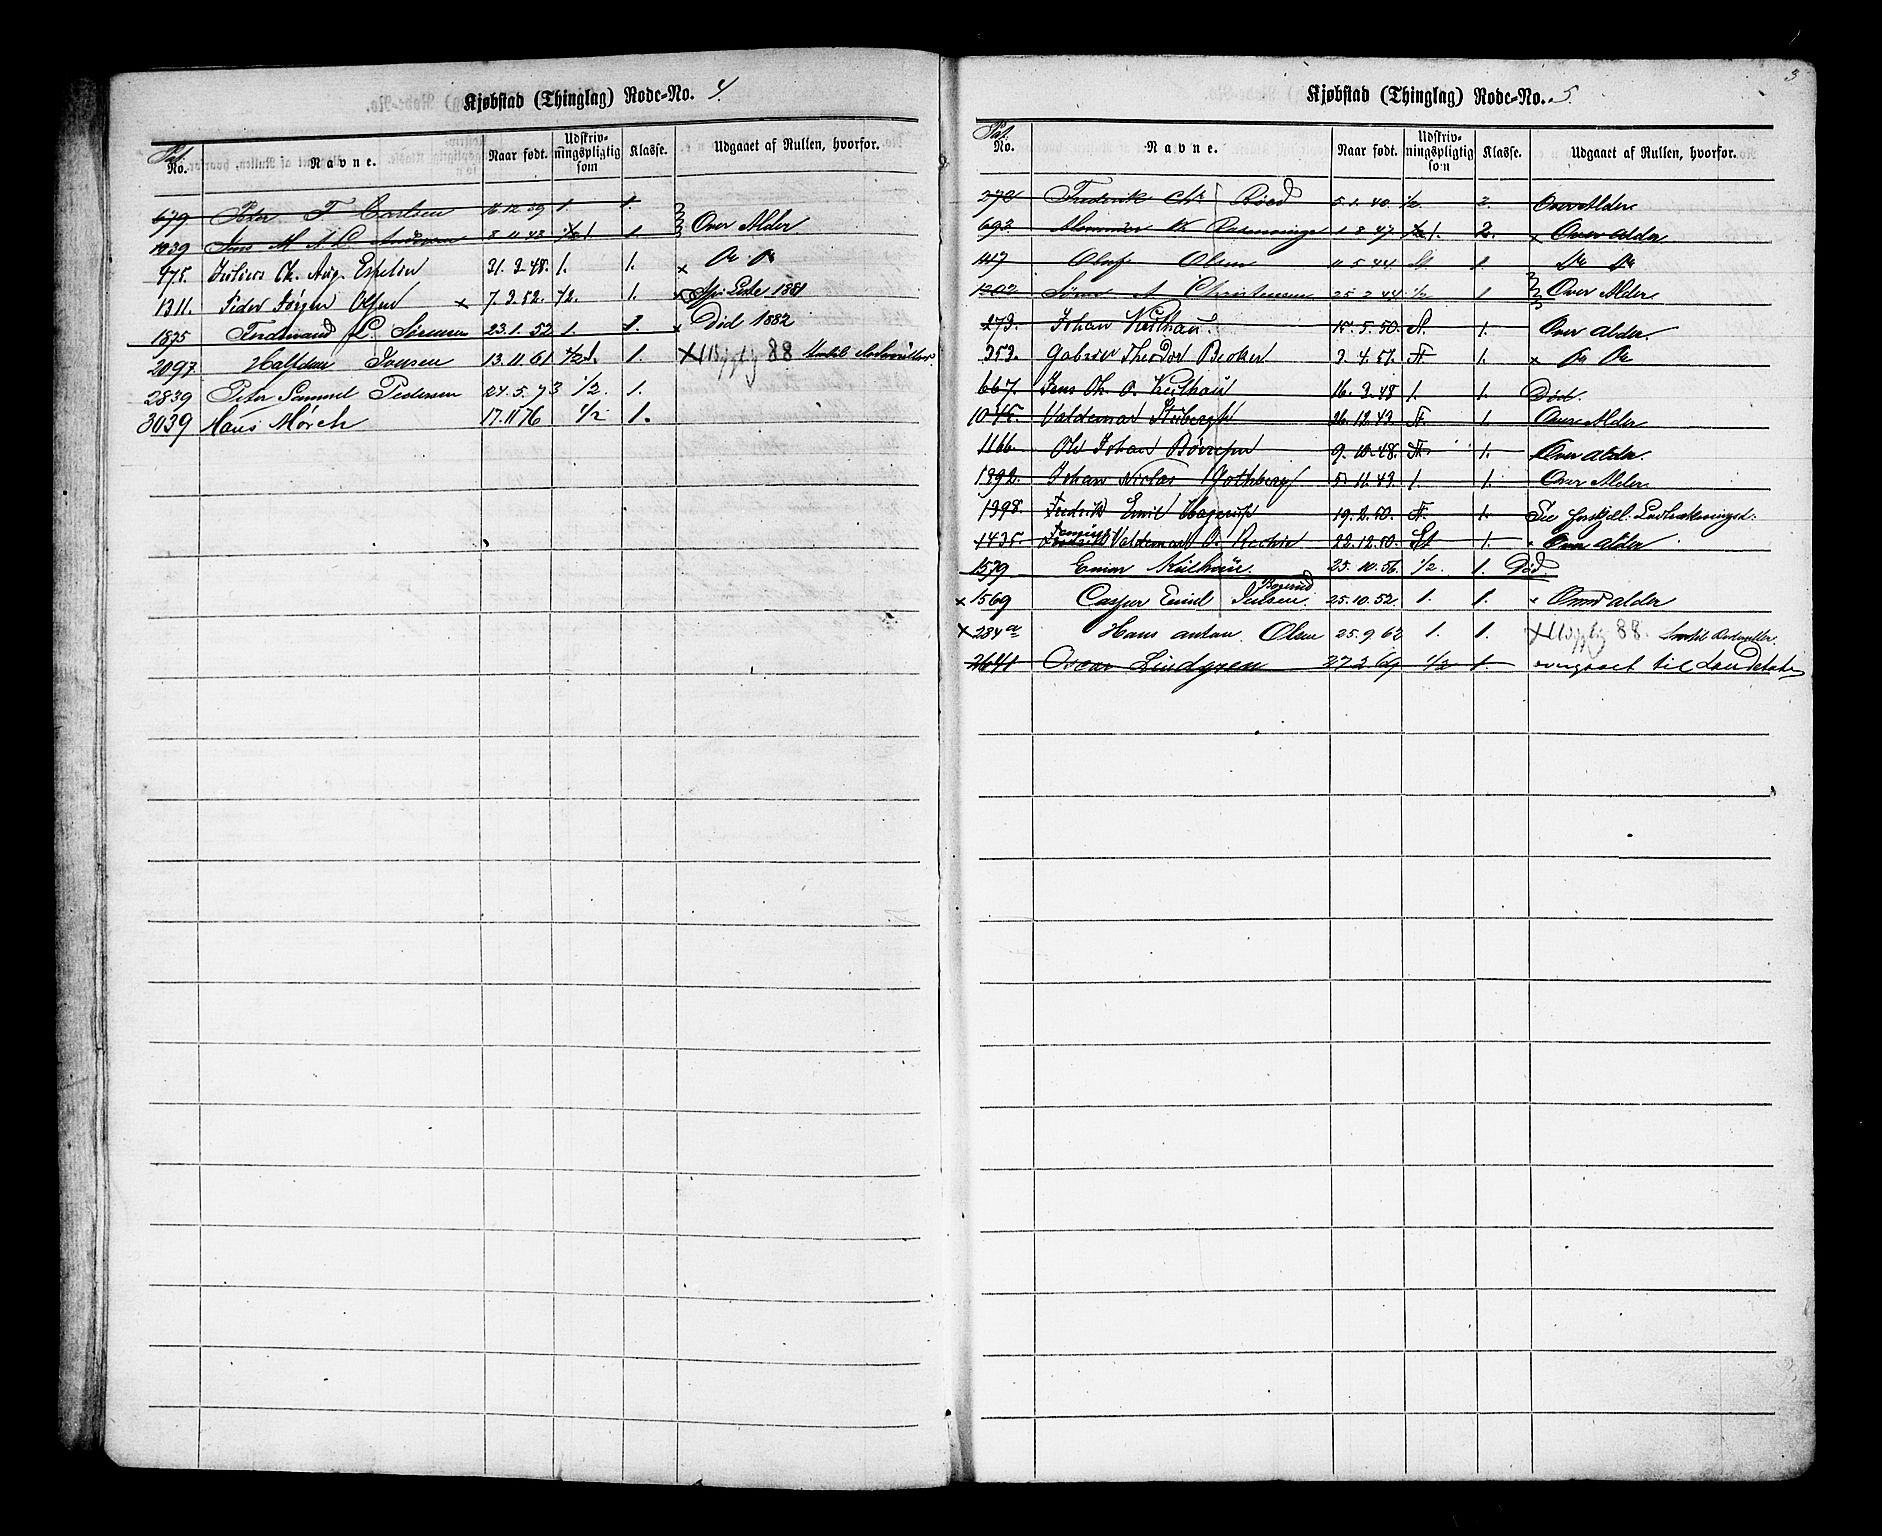 Kjøbstad (Thinglag) Rode-No. 4.
Pat. No. Navne. Naar født. Udskrivningspligtig som Klasse. Udgaaet af Rullen, hvorfor.
679 Peter F Carlsen 16.12.39 1. 1.
1039 Jens M A L Andersen 8.11.43 1. 1 Over Alder
975. Julius Ch. Aug. Espelin 31.3.48. 1. 1. Do Do
1311. Peder Jørgen Olsen x 7.3.52. 1/2. 1. x 1881
1875 Ferdinand L. Sørensen 23.1.52 1. 1. x Död 1882
2097 Halfdan Iversen 13.11 61 1/2 1. 1. x 88
2839 Peter Samuel Pedersen 24.5.73 1/2. 1.
3039 Hans Mørch 17.11 76 1/2 1.
3
Kjøbstad (Thinglag) Rode-No. 5.
Pat. No. Navne. Naar født. Udskrivningspligtig som Klasse. Udgaaet af Rullen, hvorfor.
272 Fredrik Chr Röed 5.1.40. 1/2. 2. Over Alder
692 K 1 8 47 1. 2. x Over alder
117 Oluf Olsen 11 5 44 St. 1. Do Do
1202 Sören A Christensen 25 2 44 1/2 1 Over Alder
273. Johan Keilhau. 15.5.50. St. 1. Over alder
353. Gabriel Theodor Becker 3.4.51. F 1. x Do Do
667. Jens Ch. O. Keilhau 16.3.48 1. 1. Død.
1045. Valdemar 26.12.43. F. 1. Over Alder
1166. Ole Johan 9.10.48. F. 1. Over alder.
1892. Johan Niclas Gothberg 5.11.43. 1. 1. Over Alder
1398. Fredrik Emil 19.2.50. F. 1. Se
1435. Valdemar 22.12.50. St 1. Over alder
1579 Einar Keilhau. 25.10.56. 1/2. 1. Död.
x 1569 Casper Emil Julsen 25.10.52. 1. 1. Over alder
x 234 a Hans Anton Olsen 25.9 62 1. 1. x 88.
2641 Oscar Lindgren 27 2 69 1/2 1. overgaaet til